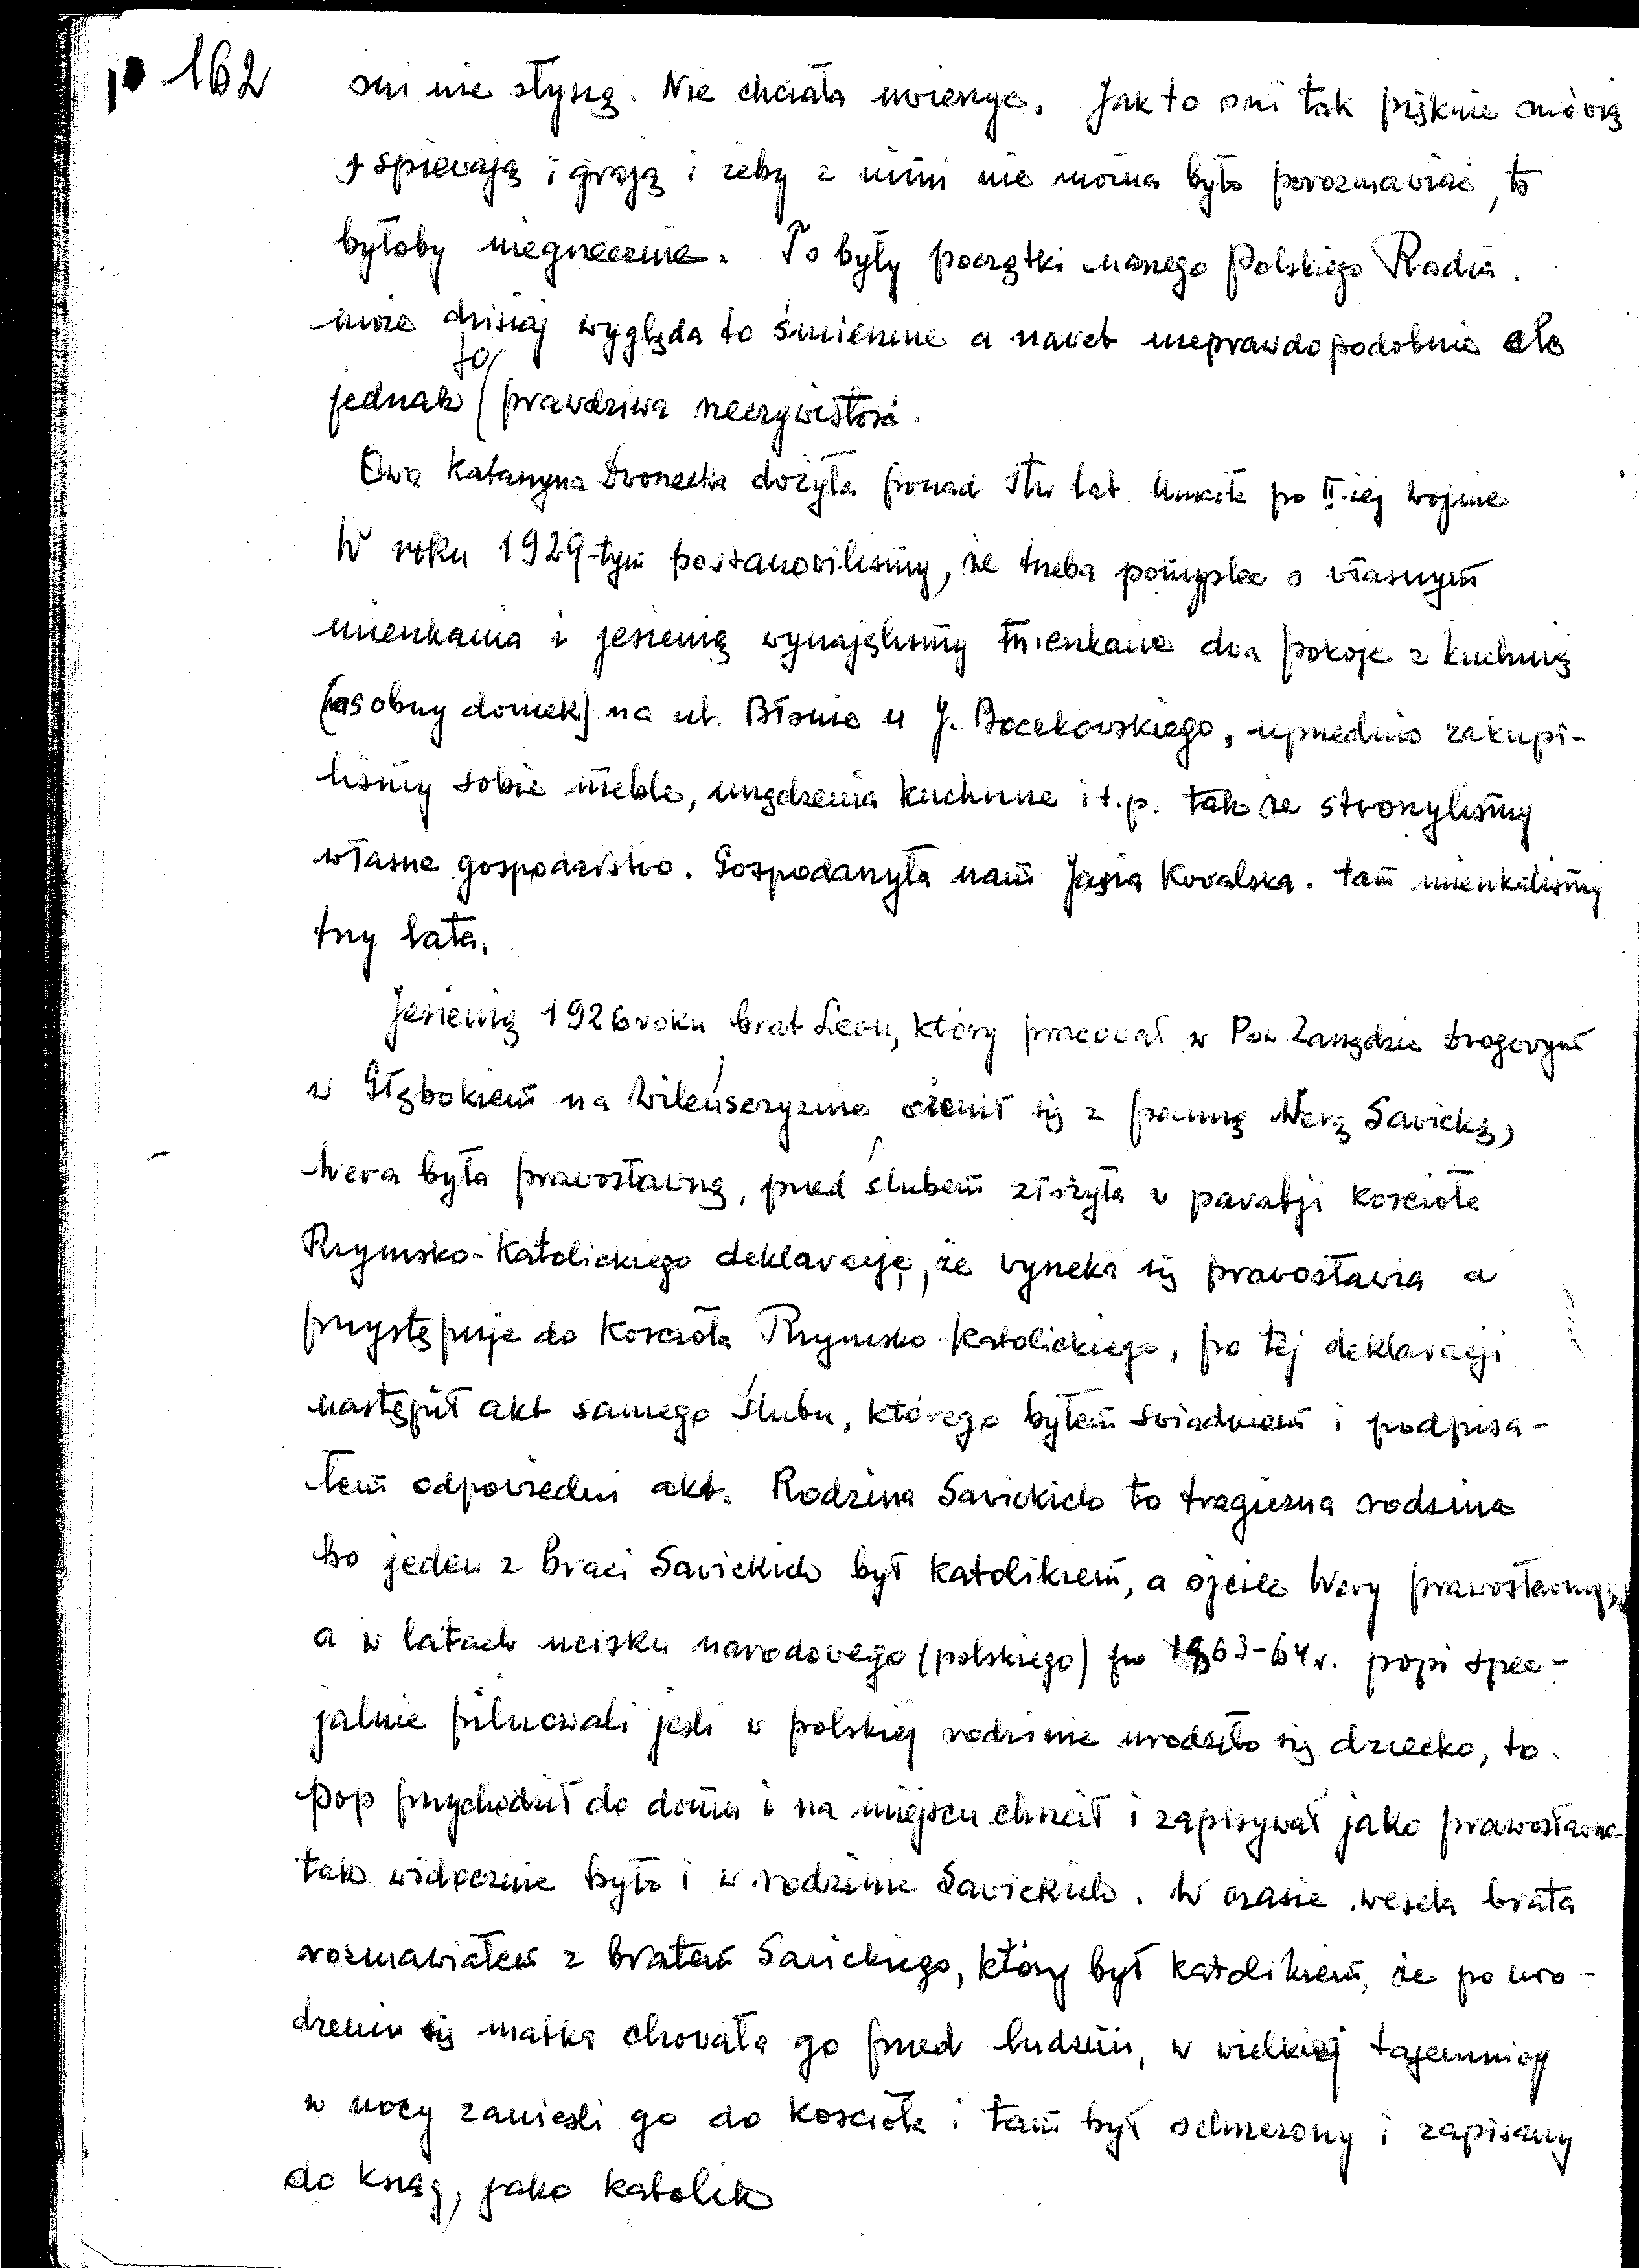 162
oni nie słyszą. Nie chciała uwierzyć. Jak to oni tak pięknie mówią
i śpiewają i grają i żeby z nimi nie można było porozmawiać, to
byłoby niegrzecznie. To były początki naszego Polskiego Radia.
może dzisiaj wygląda to śmieszne a nawet nieprawdopodobnie ale
jednak to prawdziwa rzeczywistość.
Owa Katarzyna Dronecka dożyła ponad stu lat. Umarła po II-iej wojnie
W roku 1929-tym postanowiliśmy, że trzeba pomyśleć o własnym
mieszkania i jesienią wynajęliśmy mieszkanie dwa pokoje z kuchnią
(osobny domek) na ul. Błonie u J. Boczkowskiego, uprzednio zakupi-
liśmy sobie meble, urządzenia kuchenne i t.p. tak że stworzyliśmy
własne gospodarstwo. Gospodarzyła nam Jasia Kowalska. tam mieszkaliśmy
trzy lata.
Jesienią 1926 roku brat Leon, który pracował w Pow. Zarządzie Drogowym
w Głębokiem na Wileńszczyźnie ożenił się z panną Werą Sawicką,
Wera była prawosławną, przed ślubem złożyła w parafji Kościoła
Rzymsko-Katolickiego deklarację, że wyrzeka się prawosławia a
przystępuje do Kościoła Rzymsko-Katolickiego, po tej deklaracji
nastąpił akt samego ślubu, którego byłem świadkiem i podpisa-
łem odpowiedni akt. Rodzina Sawickich to tragiczna rodzina
bo jeden z braci Sawickich był katolikiem, a ojciec Wery prawosławny,
a w latach ucisku narodowego (polskiego) po 1863-64 r. popi spec-
jalnie pilnowali jeśli w polskiej rodzinie urodziło się dziecko, to
pop przychodził do domu i na miejscu chrzcił i zapisywał jako prawosławne
tak widocznie było i w rodzinie Sawickich. W czasie wesela brata
rozmawiałem z bratem Sawickiego, który był katolikiem, że po uro-
dzeniu się matka chowała go przed ludźmi, w wielkiej tajemnicy
w nocy zanieśli go do kościoła i tam był ochrzczony i zapisany
do ksiąg, jako katolik